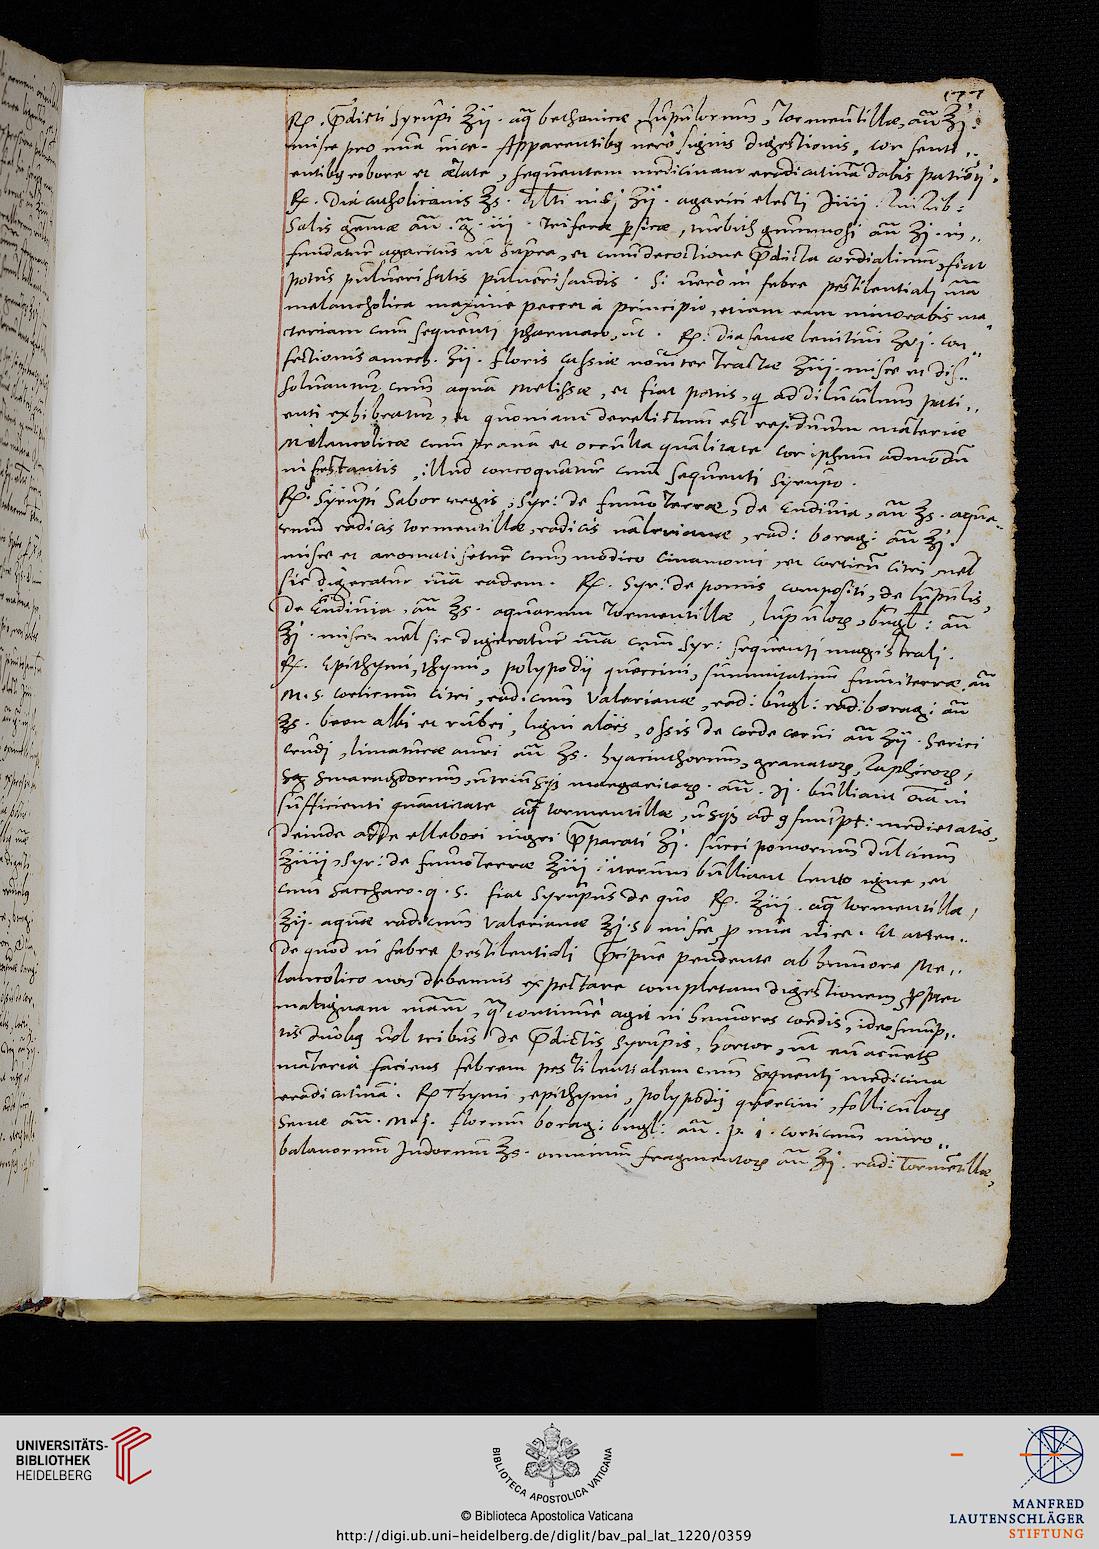 177
℞. p̄dicti Syrupi ℥ij. aq̄ bethonicæ, lupulorum, tormentillæ, aū ℥j.
misce pro una vice. Apparentibꝫ vero signis digestionis, cor senti..
entibꝫ robore et ætate, sequentem medicinam eradicativā dabis
℞. Dia catholiconis ℥s. agarici electi
Salis gemæ aū .g. iij. triferæ ꝑsicæ, turbith gummosi aū ʒj. in..
fundatur agaricus ut supra, et cum decoctione p̄dicta cordialium, fiat
potus pulverisatis pulverisandis. Si vero in febre pestilentiali mā
melancholica maxime peccet à principio, etiam eam minorabis ma-
teriam cum sequenti pharmaco, ut. ℞. Diasenæ lenitivi ʒvj. con..
fectionis amech. ʒij. floris cassiæ noviter tractæ ʒiij. misce et dis..
solvantur cum aqua Melissæ, et fiat potus, q̄ ad diluculum pati..
enti exhibeatur, et quoniam derelictum est residuum materiæ
Melancolicæ cum prava et occulta qualitate cor ipsum admodū
infestantis, illud concoquatur cum sequenti Syrupo.
℞. Syrupi Sabor regis, Syr: de fumo terræ, de Endivia, aū ℥s. aqua-
rum radicis tormentillæ, radicis valerianæ, rad: borag: aū ℥j.
misce et aromatisetur cum modico cinamomi, et corticū citri, vel
sic digeratur mā eadem. ℞. Syr: de pomis compositi, de lupulis,
de Endivia, aū ℥s. aquarum tormentillæ, lupuloꝝ, bugl: aū
℥j. misce, vel sic digeratur mā cum Syr: sequenti magistrali.
℞. Epithymi, thymi, polypodij quercini, summitatum fumiterræ, aū
M.s. corticum citri, radicum Valerianæ, rad: bugl: rad: borag: aū
℥s. been albi et rubei, ligni aloës, ossis de corde cervi aū ʒij. Serici
crudi, limaturæ auri aū ʒs. hyacinthorum, granatoꝝ, Saphiroꝝ,
Smaragdorum, utriusqꝫ margaritoꝝ. aū. ℈j. bulliant oīa in
sufficienti quantitate aq̄ tormentillæ, usqꝫ ad ꝯsumpt: medietatis,
deinde adde ellebori nigri p̄parati ʒj. succi pomorum dulcium
℥iiij, Syr: de fumo terræ ℥iij. iterum bulliant lento igne, et
cum Saccharo. q. s. fiat Syrupus de quo ℞. ℥iij. aq̄ tormentillæ,
℥ij. aquæ radicum Valerianæ ℥j.s misce ꝓ una vice. Et atten..
de quod in febre Pestilentiali p̄cipue pendente ab humore Me..
lancolico non debemus expectare completam digestionem, ꝓpter
malignam mām, q̄ continue agit in humores cordis, ideo sump..
tis duobꝫ vel tribus de p̄dictis Syrupis, hortor, ut evacuetꝭ
materia faciens febrem pestilentialem cum sequenti medicina
eradicativa. ℞ Thymi, epithymi, polypodij quercini, folliculoꝝ
Senæ aū. M.j. florum borag: bugl: aū. p. i. corticum miro..
balanorum Indorum ℥s. omnium fragmentoꝝ aū ʒj. rad: Tormētillæ,
UNIVERSITÄTS-
BIBLIOTHEK
HEIDELBERG
BIBLIOTECA APOSTOLICA VATICANA
© Biblioteca Apostolica Vaticana
http://digi.ub.uni-heidelberg.de/diglit/bav_pal_lat_1220/0359
MANFRED
LAUTENSCHLÄGER
STIFTUNG